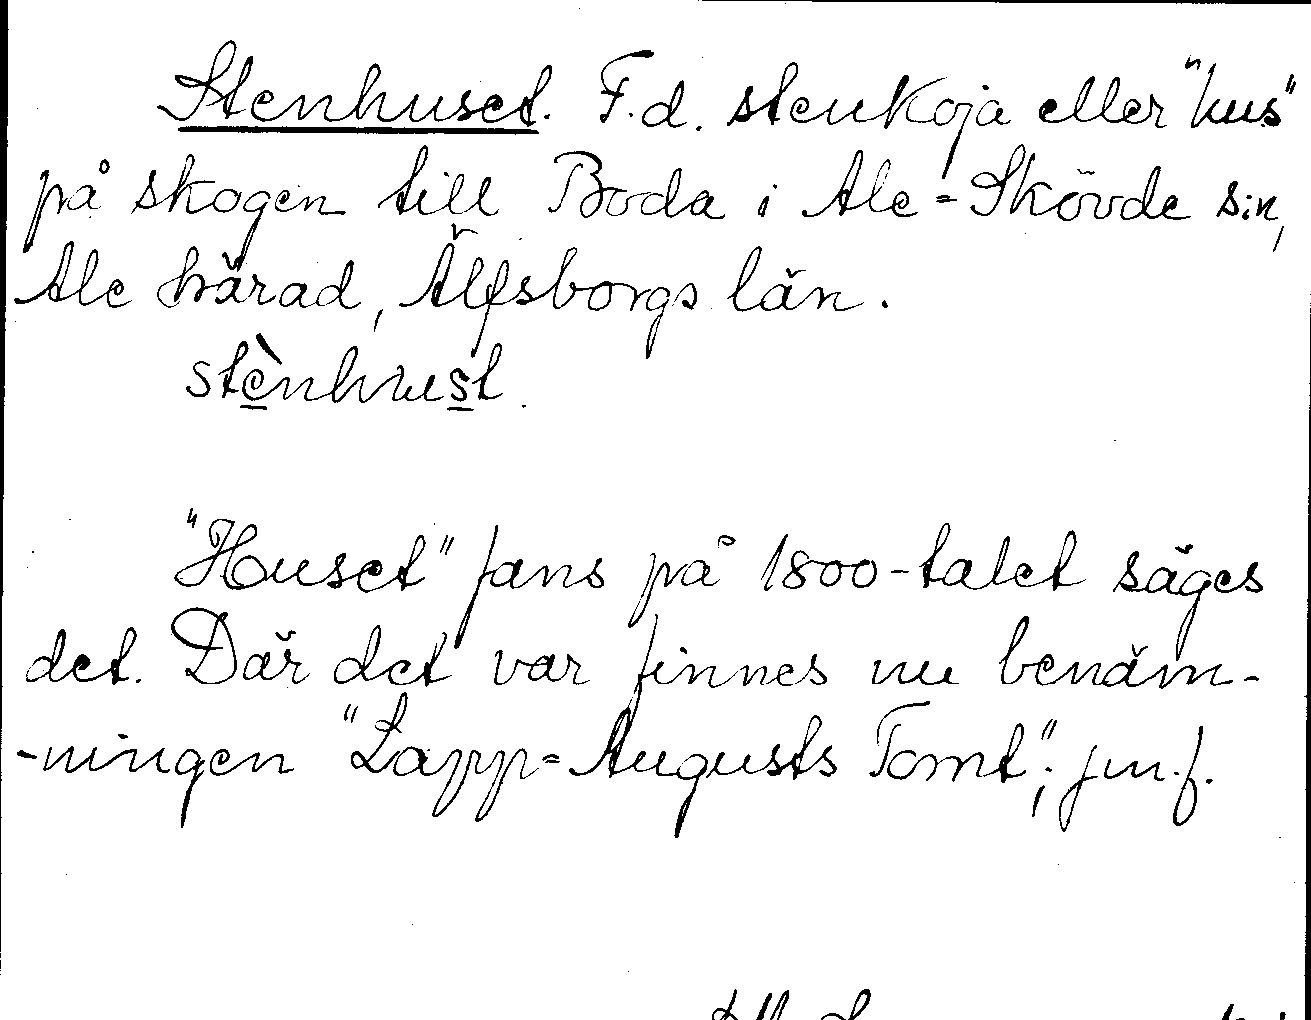 Stenhuset. F.d. stenkoja eller "hus"
på skogen till Boda i Ale-Skövde s:n,
Ale härad, Älfsborgs län.
stènhust.
"Huset" fans på 1800-talet säges
det. Där det var finnes nu benäm-
-ningen "Lapp-Augusts Tomt"; jm.f.